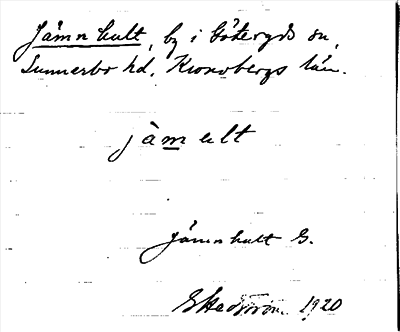 Jämnhult, by i Göteryds sn,
Sunnerbo hd, Kronobergs län.
jàmelt
Jämnhult G.
G Hedström 1920